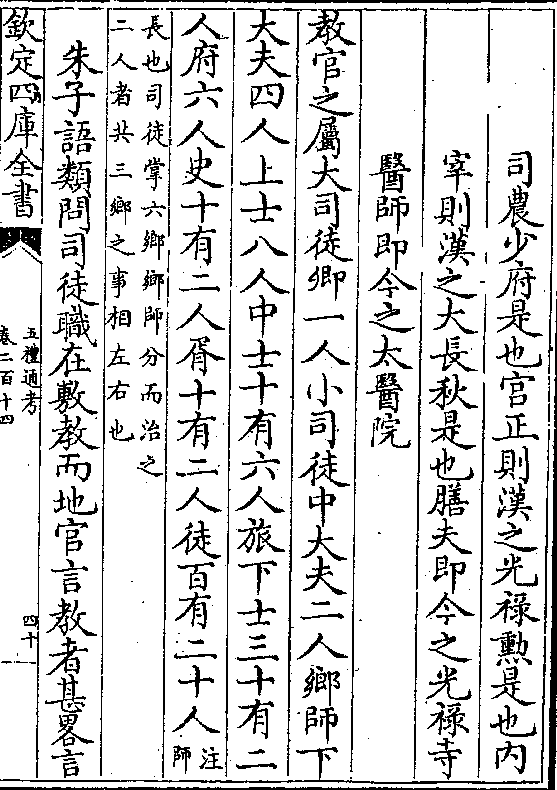 司農少府是也宫正則漢之光禄勲是也内
宰則漢之大長秋是也膳夫即今之光禄寺
醫師即今之太醫院
教官之屬大司徒卿一人小司徒中大夫二人鄉師下
大夫四人上士八人中士十有六人旅下士三十有二
人府六人史十有二人胥十有二人徒百有二十人注師
長也司徒掌六鄉鄉師分而治之
二人者共三鄉之事相左右也
朱子語類問司徒職在敷教而地官言教者甚畧言
欽定四庫全書
五禮通考
卷二百十四
四十